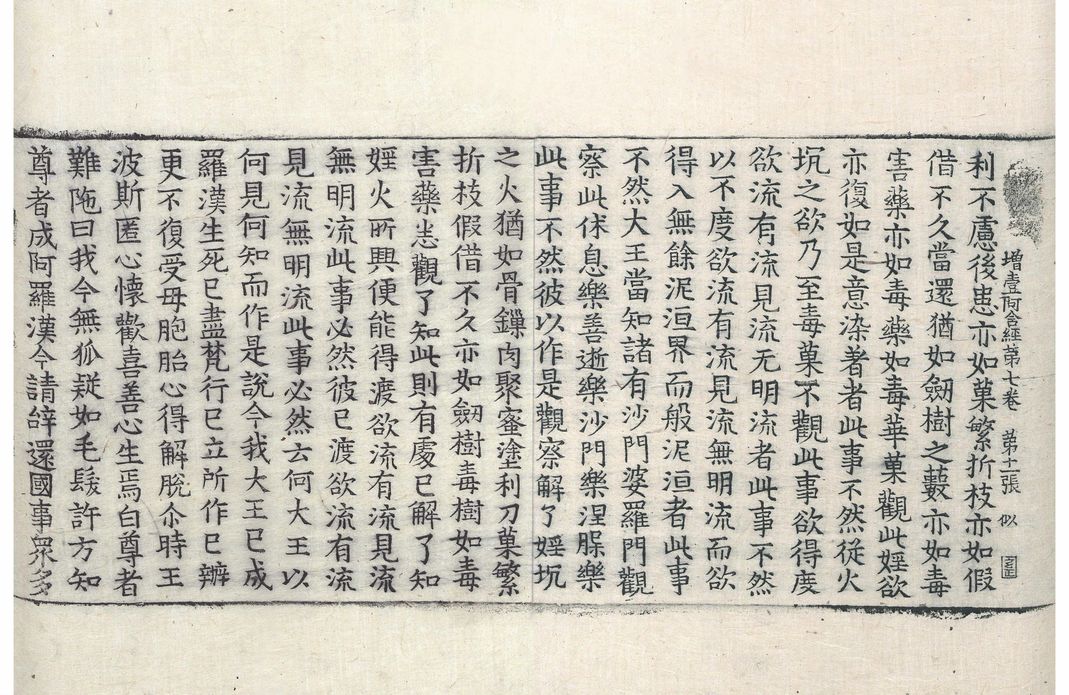 增壹阿含經第七卷 第十張 似
利不慮後患亦如菓繁折枝亦如假
借不久當還猶如劒樹之藪亦如毒
害藥亦如毒藥如毒華菓觀此婬欲
亦復如是意染著者此事不然從火
坑之欲乃至毒菓不觀此事欲得度
欲流有流見流无明流者此事不然
以不度欲流有流見流無明流而欲
得入無餘泥洹界而般泥洹者此事
不然大王當知諸有沙門婆羅門觀
察此休息樂善逝樂沙門樂涅槃樂
此事不然彼以作是觀察解了婬坑
之火猶如骨鏁肉聚蜜塗利刀菓繁
折枝假借不久亦如劒樹毒樹如毒
害藥恙觀了知此則有處已解了知
婬火所興便能得渡欲流有流見流
無明流此事必然彼已渡欲流有流
見流無明流此事必然云何大王以
何見何知而作是說今我大王已成
羅漢生死已盡梵行已立所作已辦
更不復受母胞胎心得解脫尒時王
波斯匿心懷歡喜善心生焉白尊者
難陁曰我今無狐疑如毛髮許方知
尊者成阿羅漢今請辤還國事衆多